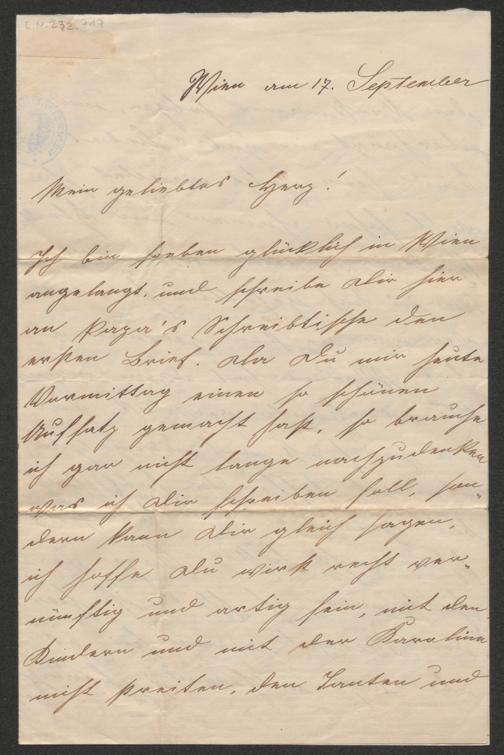 I.N. 232.717
Wien am 17. September
Mein geliebtes Herz!
Ich bin soeben glücklich in Wien
angelangt, und schreibe Dir hier
an Papa's Schreibtische den
ersten Brief. Da Du mir heute
Vormittag einen so schönen
Aufsatz gemacht hast, so brauche
ich gar nicht lange nachzudenken
was ich Dir schreiben soll, son-
dern kann Dir gleich sagen,
ich hoffe Du wirst recht ver-
nünftig und artig sein, mit den
Kindern und mit der Karoline
nicht streiten, den Tanten und